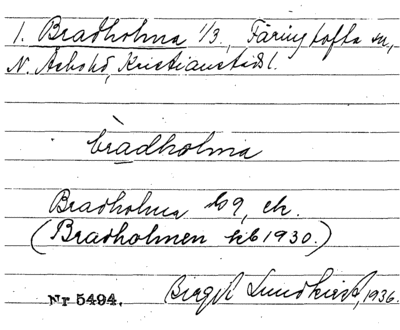 1. Bradholma 1/3, Färingtofta sn,
N. Åsbo hd, Kristianstads l.
bràdholma
Bradholma 1/3 9, ek.
(Bradholmen kb 1930.)
Nr 5494. Birgit Lundkvist, 1936.